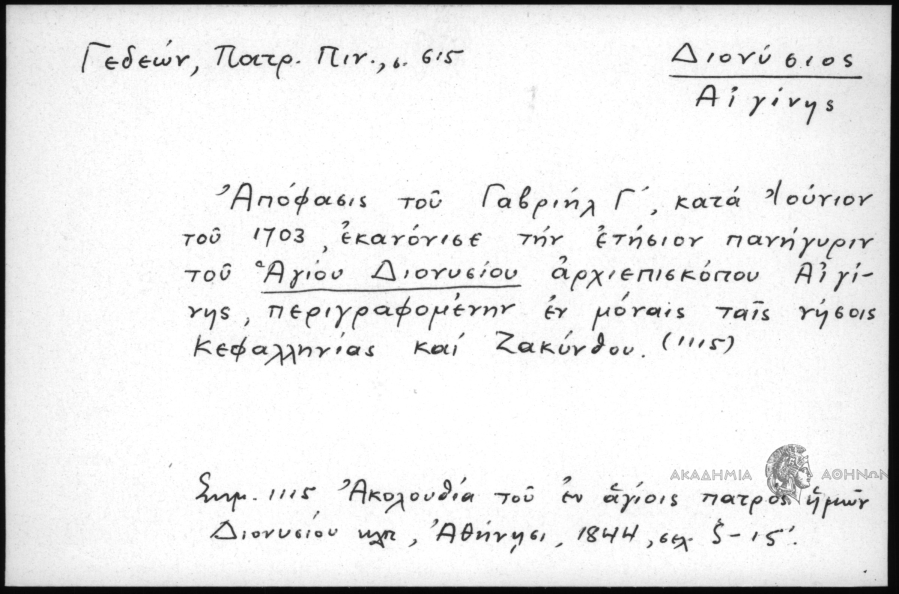 Γεδεών, Πατρ. Πιν., σ. 615
Διονύσιος
Αἰγίνης
Ἀπόφασις τοῦ Γαβριήλ Γ΄, κατά Ἰούνιον
τοῦ 1703, ἐκανόνισε τήν ἐτήσιον πανήγυριν
τοῦ Ἁγίου Διονυσίου ἀρχιεπισκόπου Αἰγί-
νης, περιγραφομένην ἐν μόναις ταῖς νήσοις
Κεφαλληνίας καί Ζακύνθου. (1115)
ΑΚΑΔΗΜΙΑ ΑΘΗΝΩΝ
Σημ. 1115 Ἀκολουθία τοῦ ἐν ἁγίοις πατρός ἡμῶν
Διονυσίου κλπ, Ἀθήνησι, 1844, σελ. ζ-ις΄.